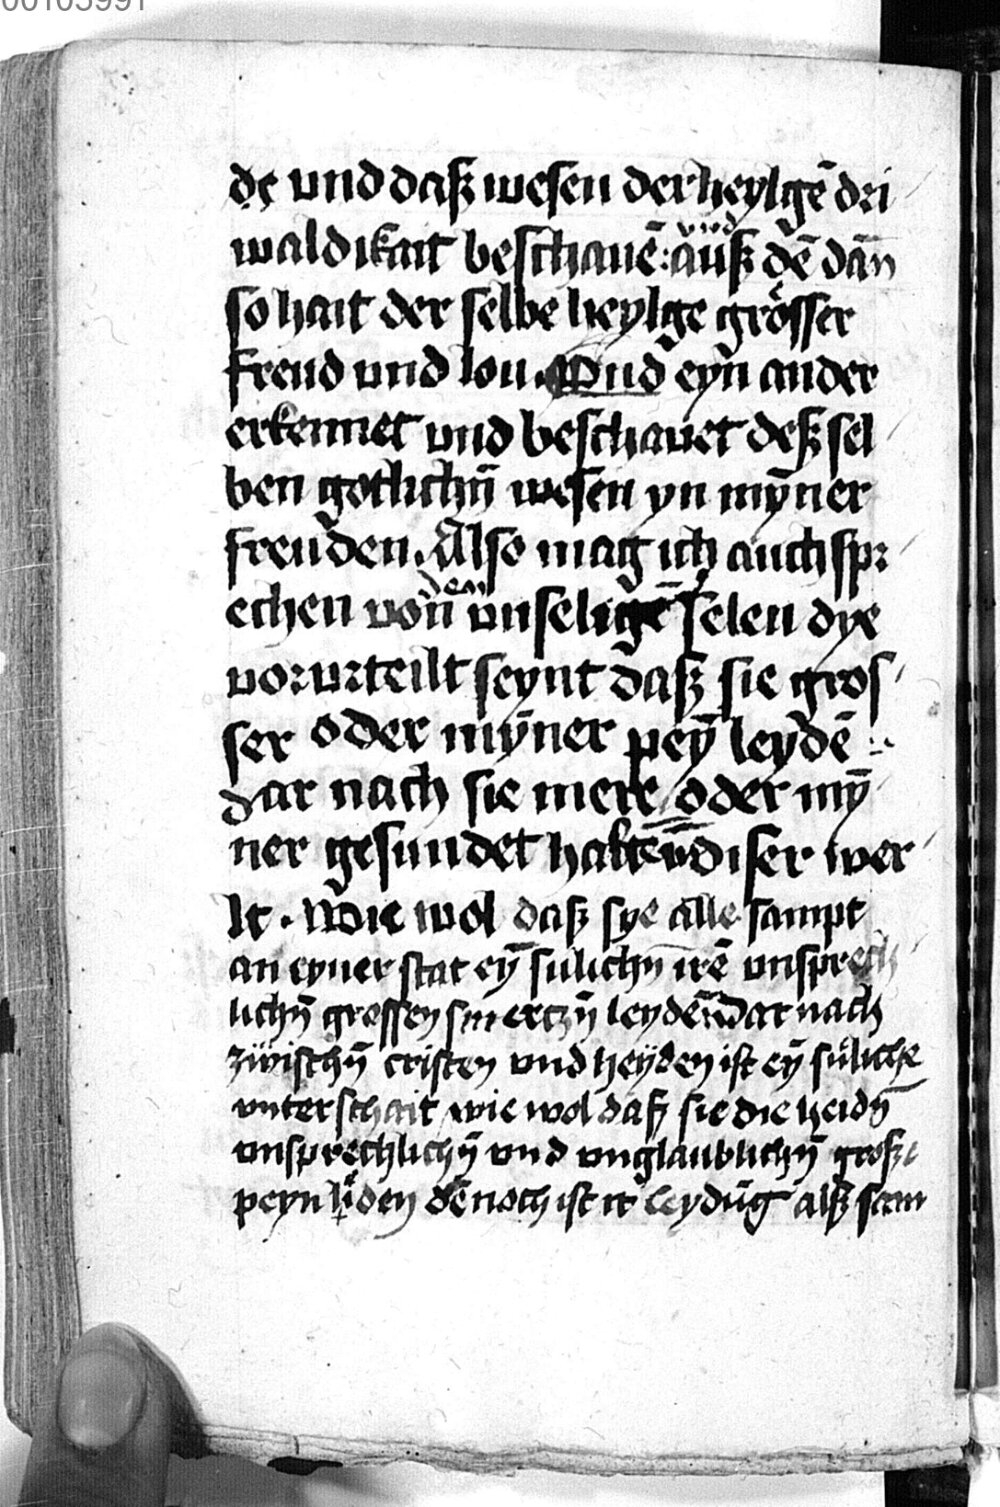 00103991
dꝫ vnd daß wesen der heylgē dri
waldikait beschauē: vnd auß dē dān
so hait der selbe heylge grosser
freud vnd lon. Vnd eyn ander
erkennet vnd beschauet deß sel
ben gotlichn̄ wesen yn mȳner
freuden. Also mag ich auch spr
echen von den vnseligē selen dye
vorurteilt seynt daß sie gros
ser oder mȳner peȳ leydē
dar nach sie mere oder mȳ
ner gesundet habē yn diser wer
lt. Wie wol daß sye alle sampt
an eyner stat eȳ sulichn̄ irē vnsprech
lichn̄ grossen smertzn̄ leydē Dar nach
zwischn̄ cristen vnd heyden ist eȳ suliche
vnterschait wie wol daß sie die heidn̄
vnsprechlichn̄ vnd vnglaublichn̄ große
peyn leyden dēnoch ist ir leydūg alß sam